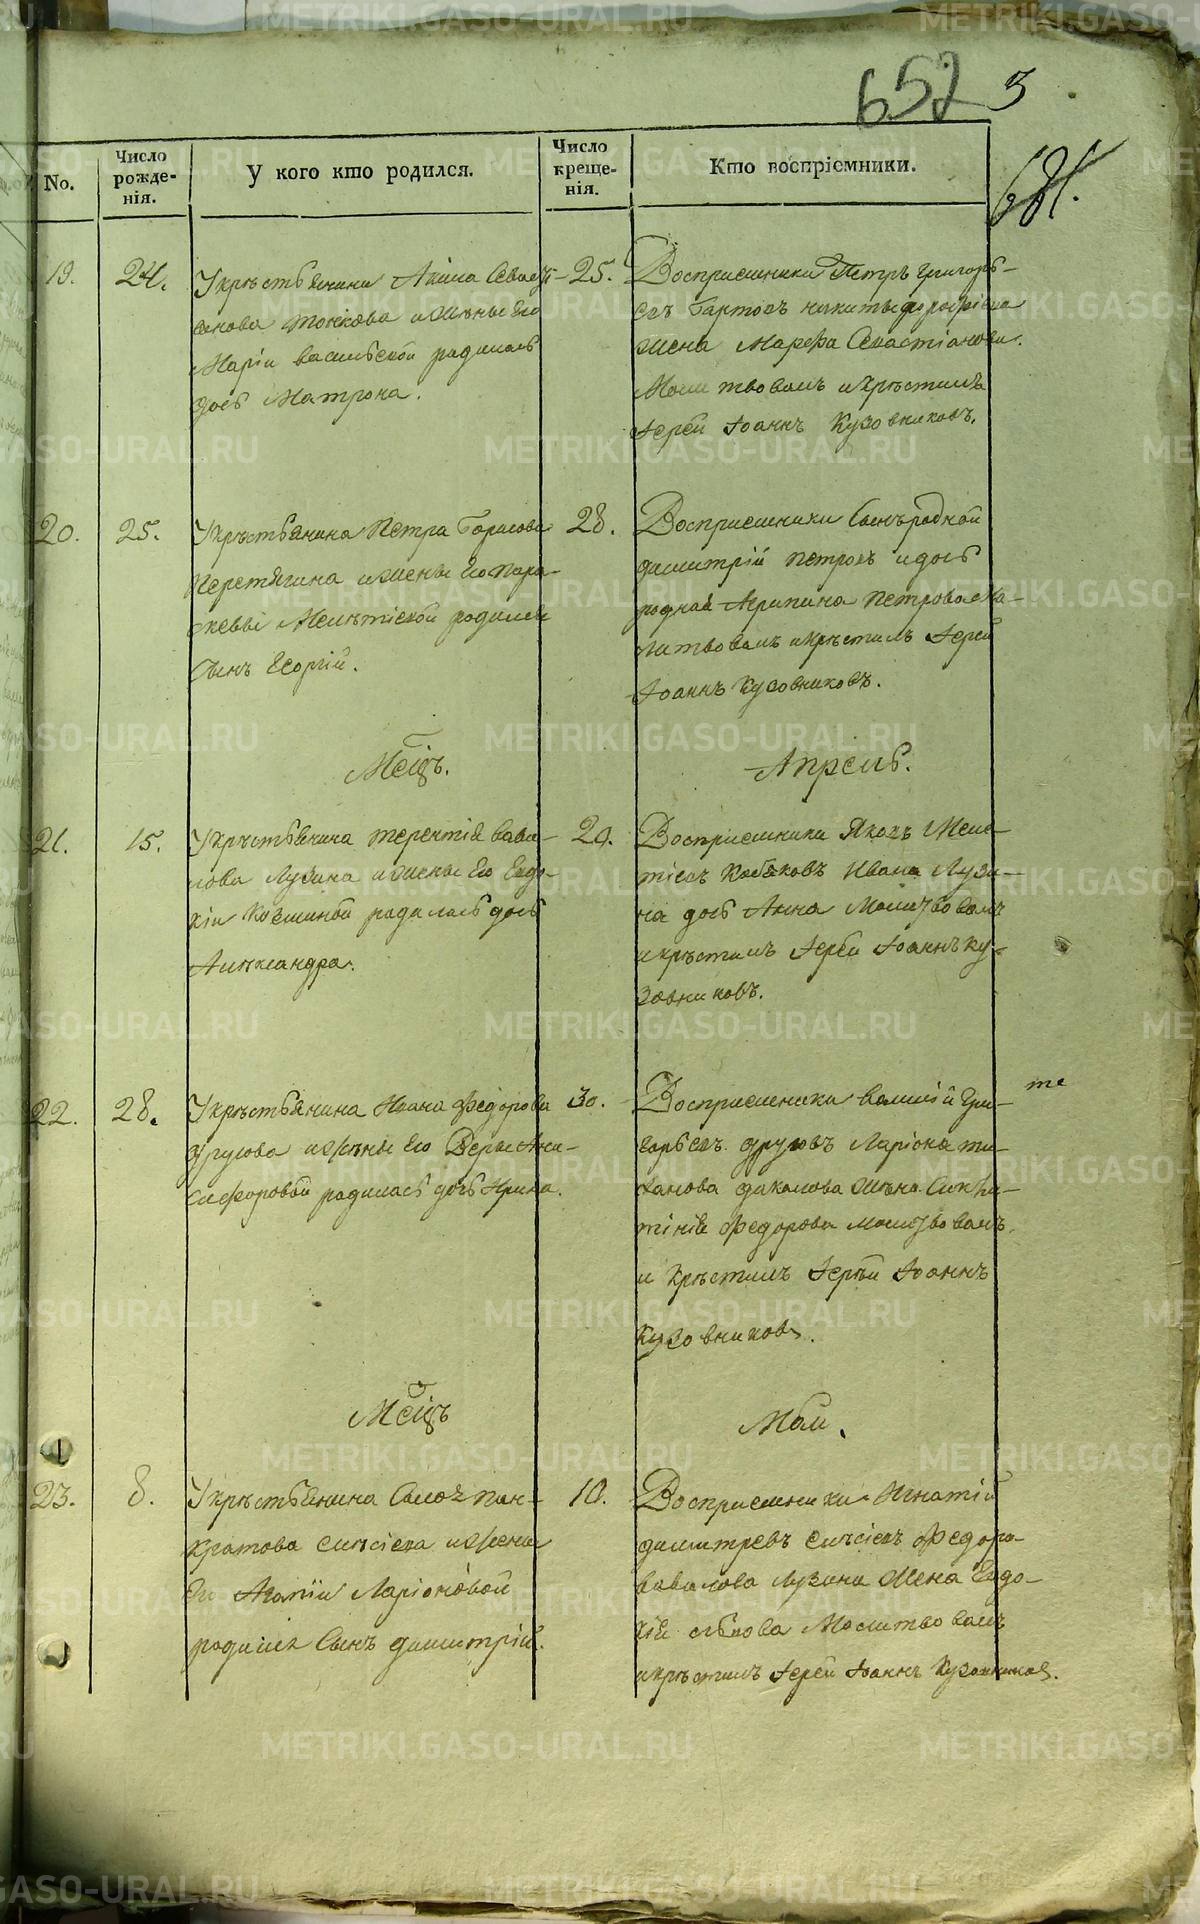 652 3
681.
No.
Число рожденія.
У кого кто родился.
Число крещенія.
Кто воспріемники.
19. 24.
Укрѣстьянина Акима Севасть-
янова Тонкова ижены Его
Маріи васильевой радилась
дочь Матрона.
25.
Восприемники Петръ григорь-
евъ
жена Марфа Севастіанова.
Молитвовалъ икрѣстилъ
Іерей Іоаннъ Кузовниковъ.
20. 25.
Укрѣстьянина Петра Борисова
Перетягина ижены Его пара-
скевы родился
Сынъ Георгій.
28.
Восприемники Сынъ родной
димитрій петровъ идочь
родная Агрипина петрова Мо-
литвовалъ икрѣстилъ Іерей
Іоаннъ Кузовниковъ.
Мсцъ. Апрель.
21. 15.
Укрѣстьянина терентія вави-
лова Лузина ижены Его Евдо-
кіи Козминой радилась дочь
Александра.
20.
Восприемники Яковъ Меле-
тіевъ Кобяковъ Ивана Лузи-
на дочь Анна Молитвовалъ
икрѣстилъ Іерей Іоаннъ Ку-
зовниковъ.
22. 28.
Укрѣстьянина Ивана Федорова
другова ижены Его Веры Ани-
сифоровой радилась дочь Ирина.
30.
Восприемники василій Гри-
горьевъ друговъ Ларіона ти-
ханова жена Синкли-
тінія Федорова молитвовалъ
и Крѣстилъ Іерей Іоаннъ
Кузовниковъ.
те
Мсцъ Маи.
23. 8.
Укрѣстьянина Савы пан-
кратова елисѣева ижены
Его Агапіи Ларіоновой
родился Сынъ димитрій.
10.
Восприемники Игнатій
димитревъ елисѣевъ Федора
вавилова Лузина Жена Евдо-
кія Молитвовалъ
икрѣстилъ Іерей Іоаннъ Кузовниковъ.
METRIKI.GASO-URAL.RU